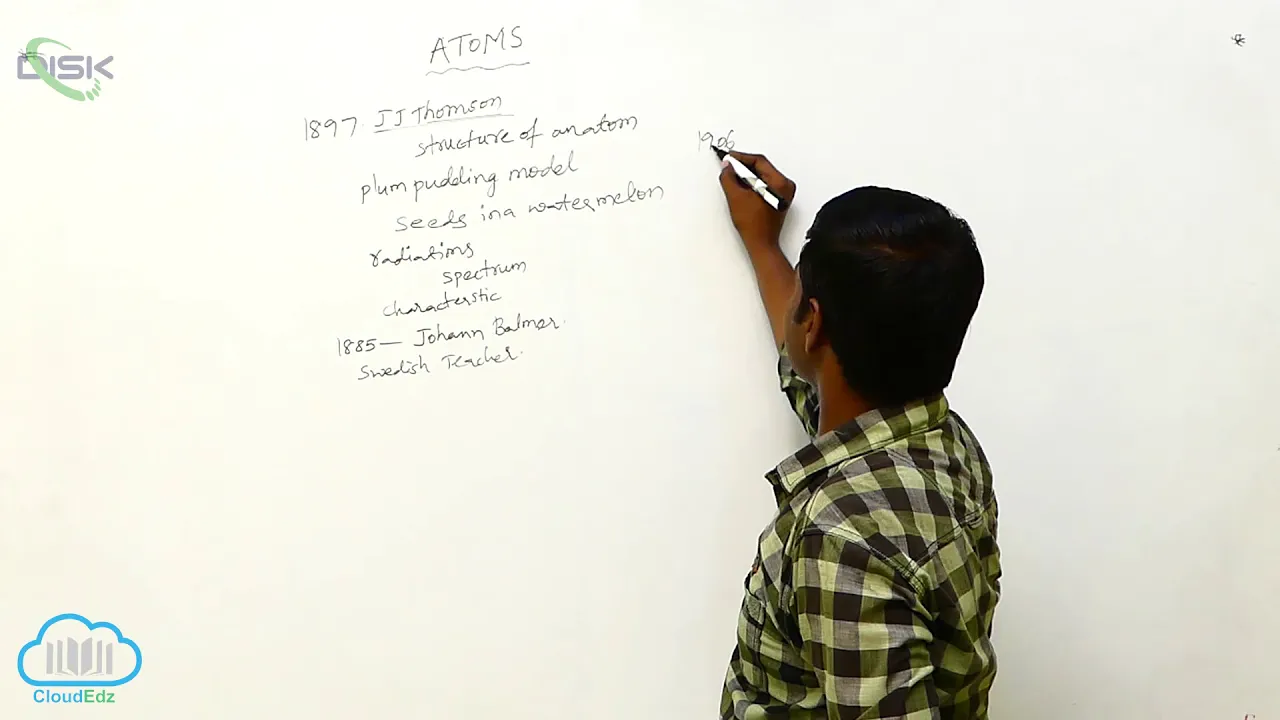 DISK
ATOMS
1897. JJ Thomson
structure of an atom
plum pudding model
seeds in a watermelon
radiations
spectrum
characterstic
1885— Johann Balmer.
Swedish Teacher.
1906
CloudEdz